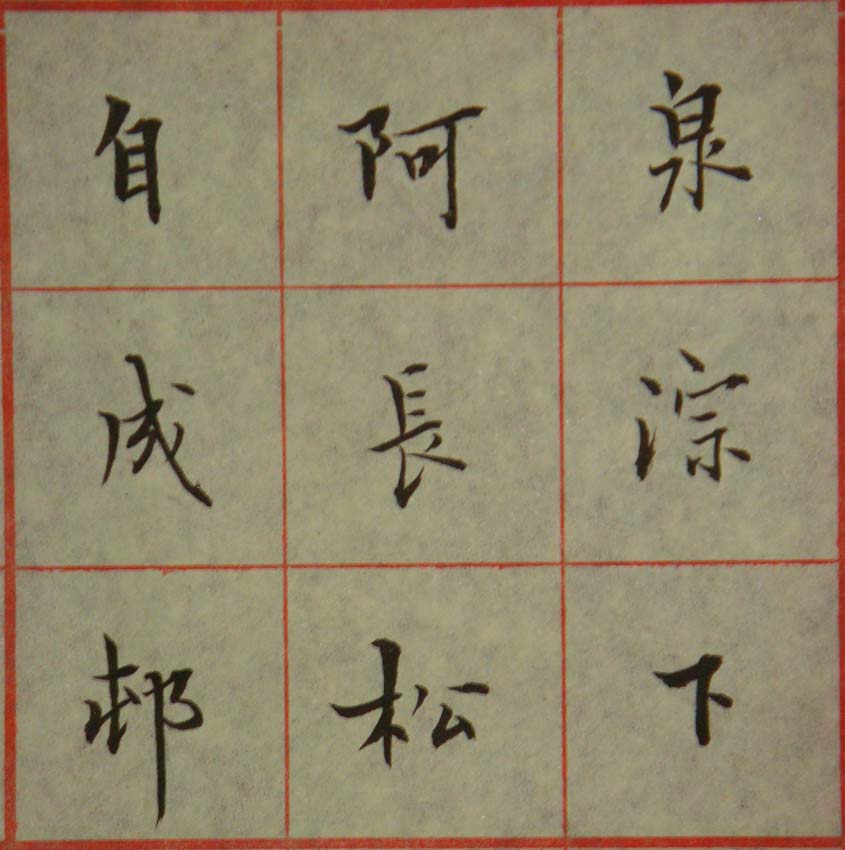 泉淙下
阿長松
自成邨